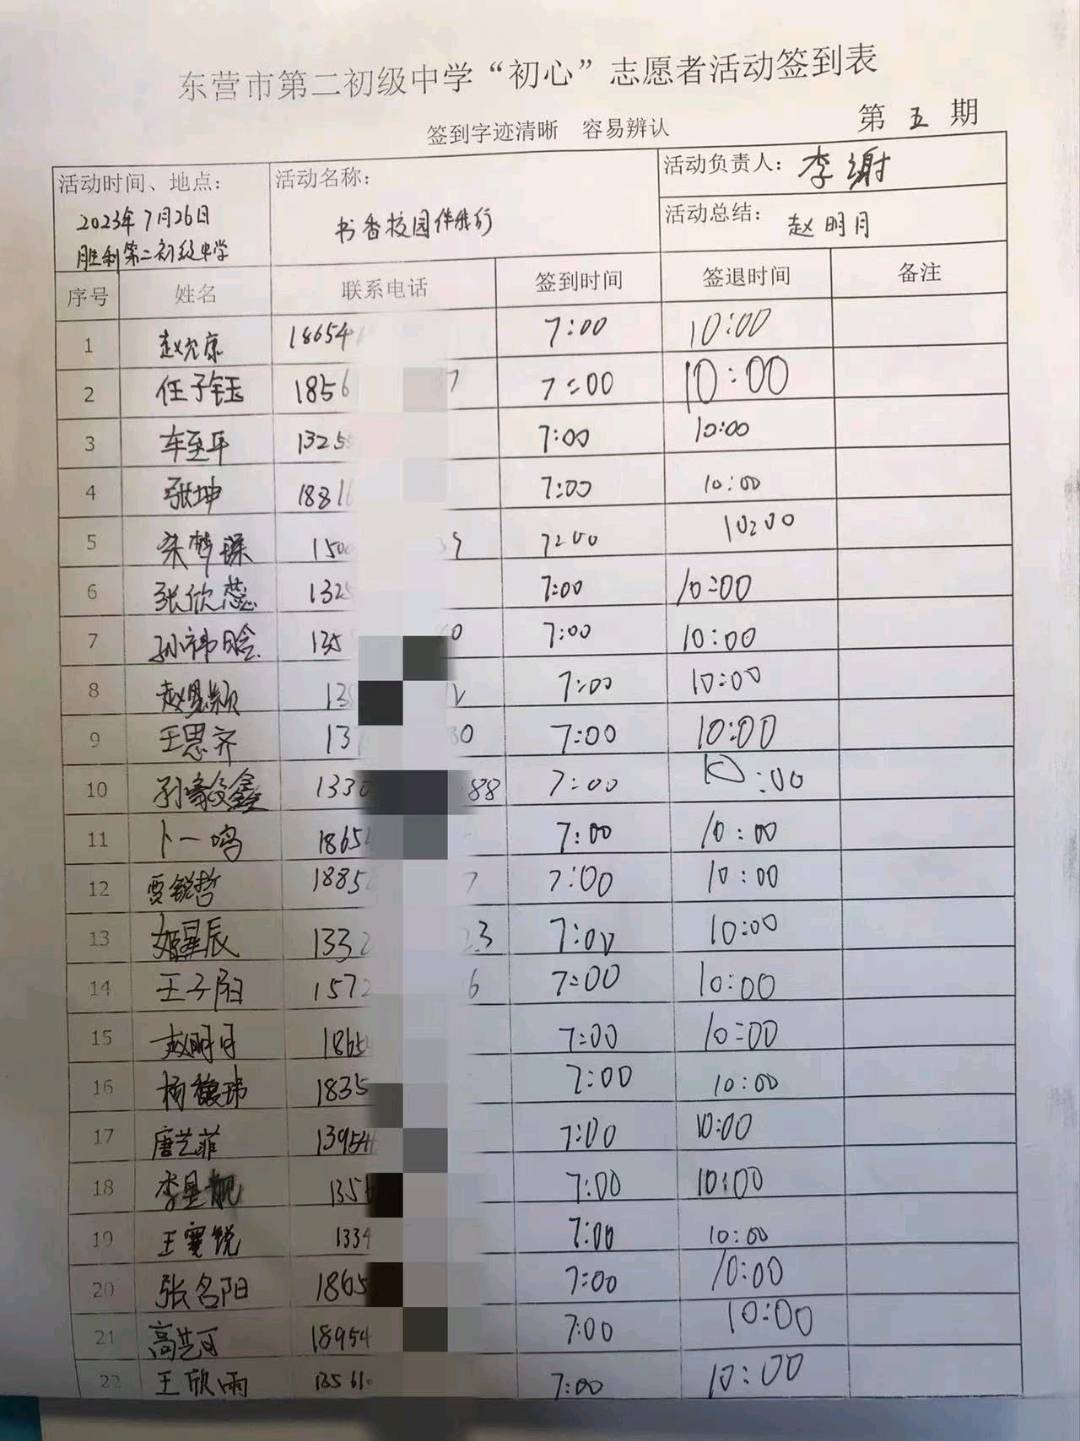 东营市第二初级中学“初心”志愿者活动签到表
签到字迹清晰 容易辨认
第 五 期
活动时间、地点：
2023年7月26日
胜利第二初级中学
活动名称：
书香校园伴我行
活动负责人：李谢
活动总结：赵明月
序号 姓名 联系电话 签到时间 签退时间 备注
1 赵允康 18654 7:00 10:00
2 任子钰 1856 7:00 10:00
3 车至平 1325 7:00 10:00
4 张坤 1881 7:00 10:00
5 宋梦琛 150 7:00 10:00
6 张欣蕊 132 7:00 10:00
7 孙祎晗 135 7:00 10:00
8 13 7:00 10:00
9 王思齐 13 30 7:00 10:00
10 133 88 7:00 10:00
11 卜一鸣 1865 7:00 10:00
12 贾锐哲 1885 7 7:00 10:00
13 姬星辰 133 3 7:00 10:00
14 王子阳 157 6 7:00 10:00
15 赵明月 1865 7:00 10:00
16 杨馥玮 1835 7:00 10:00
17 唐艺菲 1395 7:00 10:00
18 135 7:00 10:00
19 王雯锐 1334 7:00 10:00
20 张名阳 1865 7:00 10:00
21 高艺可 18954 7:00 10:00
22 王欣雨 13561 7:00 10:00